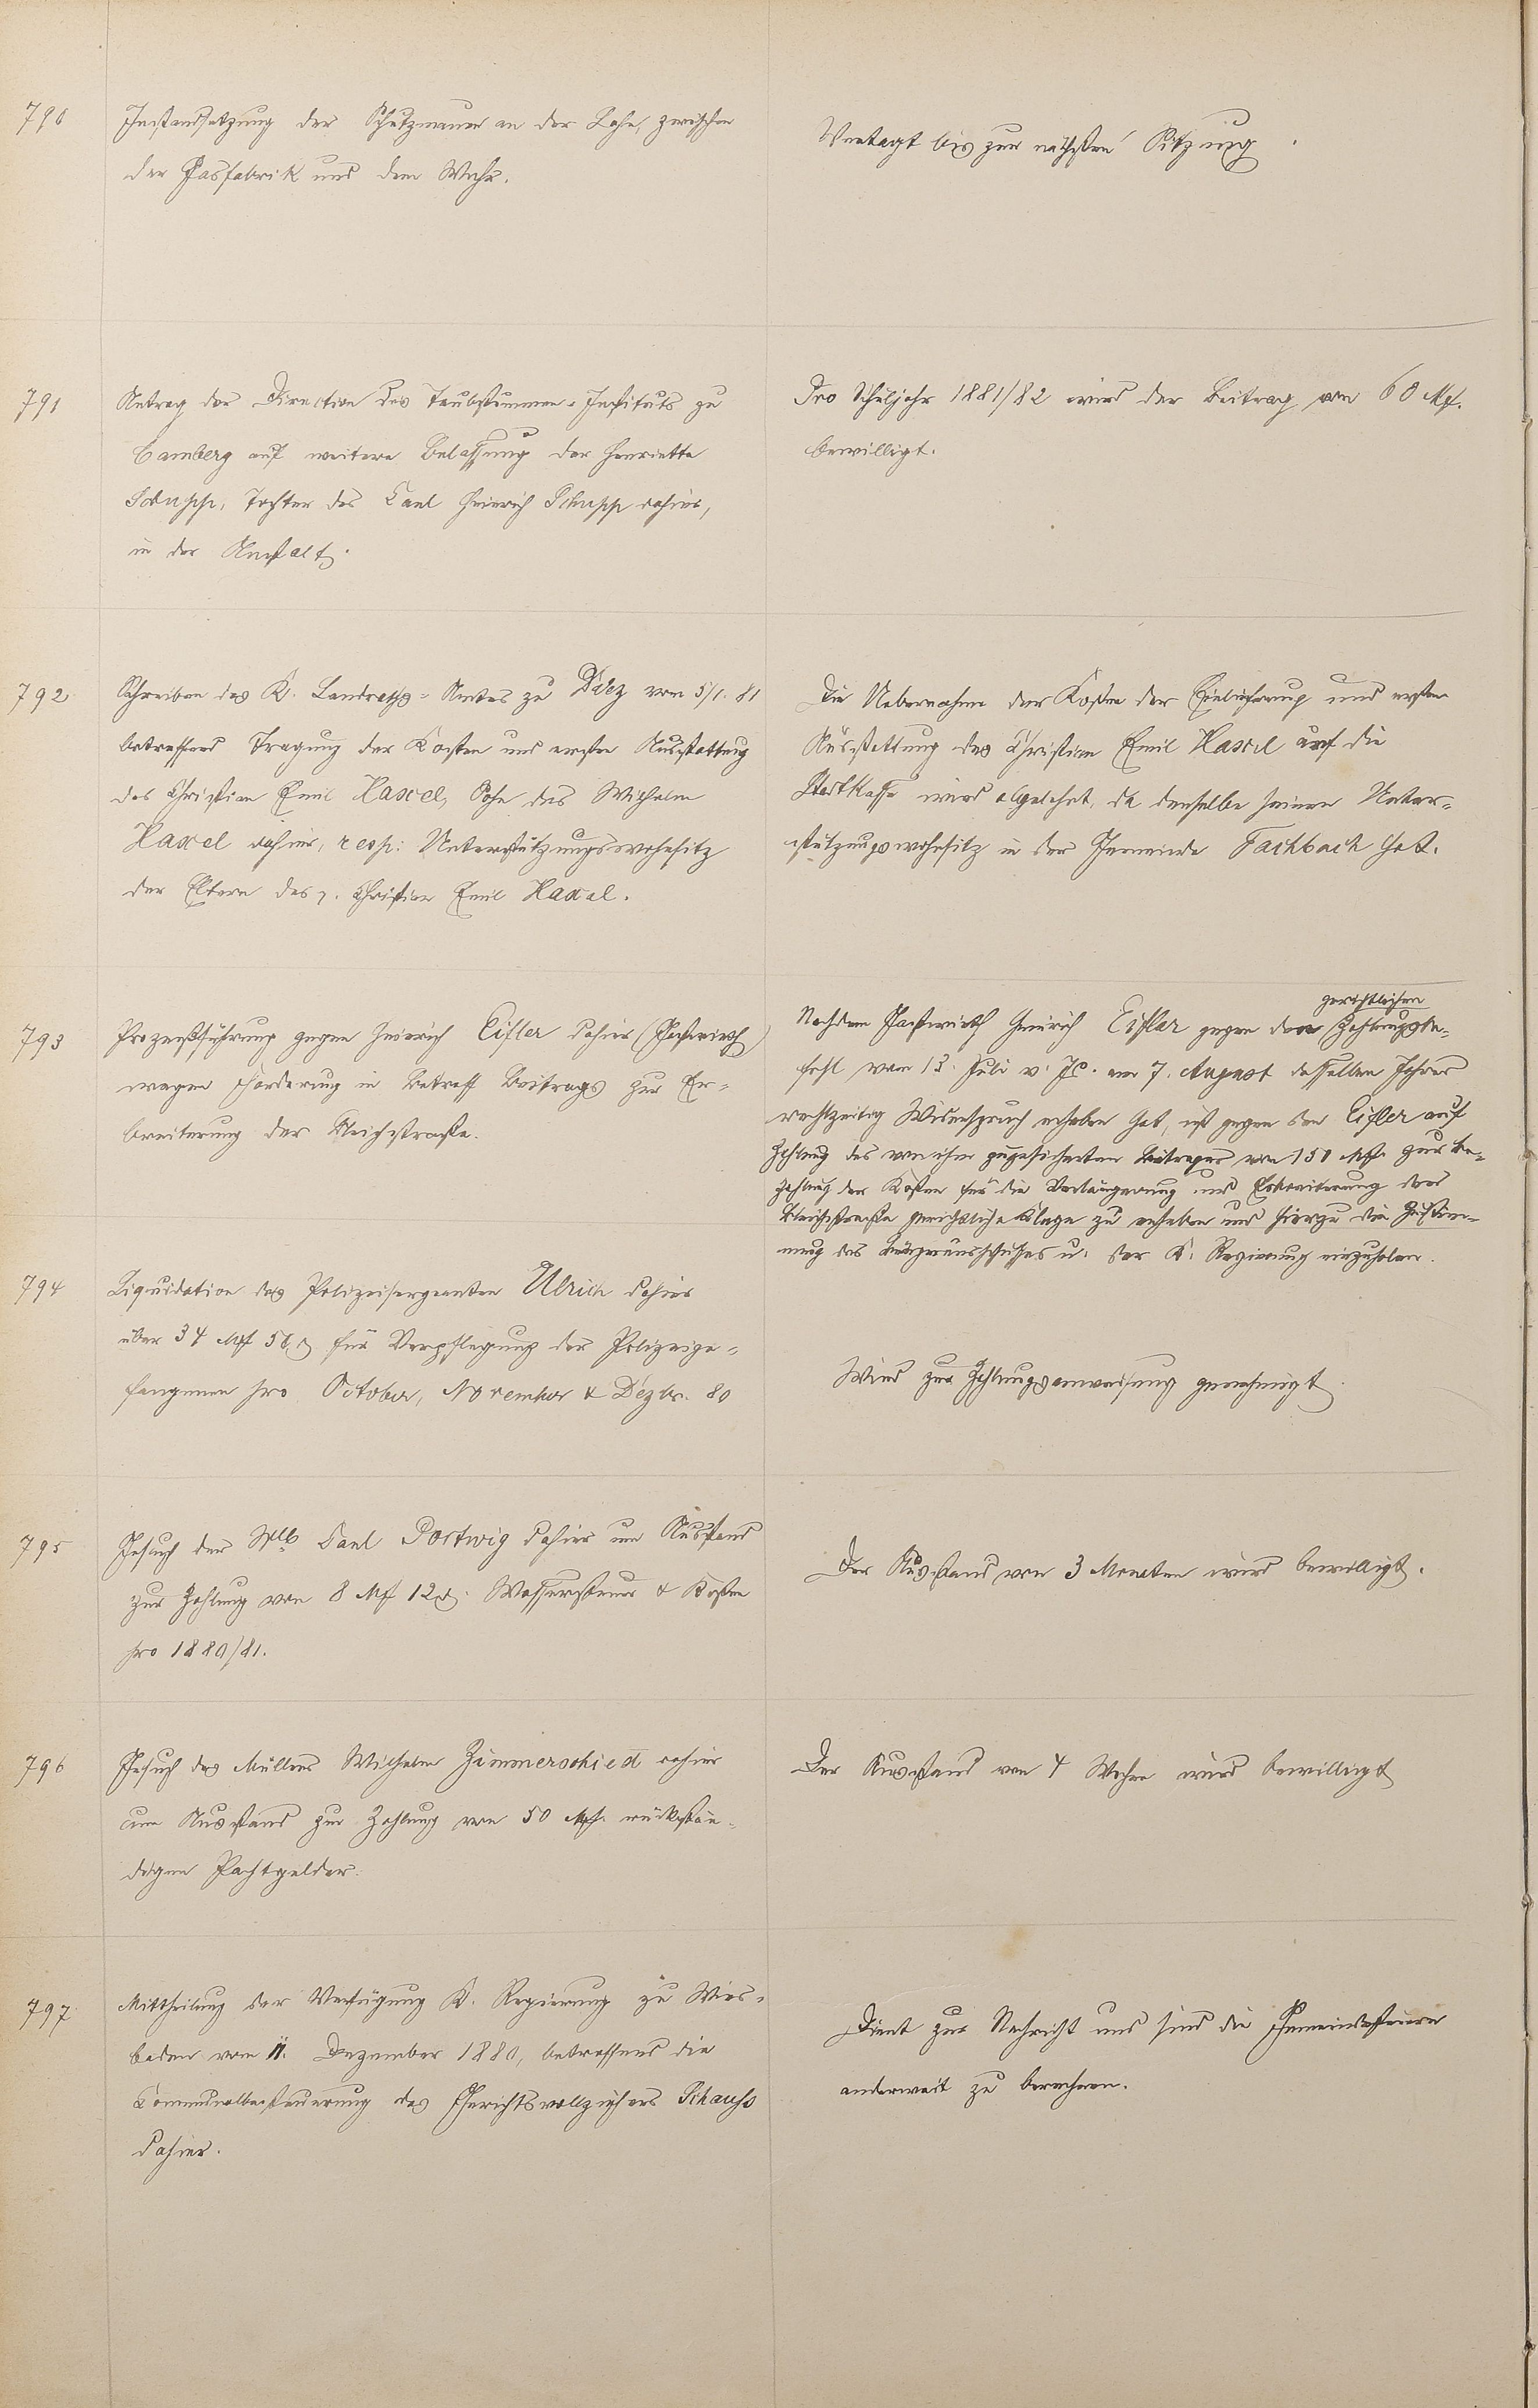 790
Instandsetzung der Schutzmauer an der Lahn, zwischen
der Gasfabrik und dem Wehr.
Vertagt bis zur nächsten Sitzung.
791
Antrag der Direction des Taubstummen-Instituts zu
Camberg auf weitere Belassung der Henriette
Schupp, Tochter des Carl Heinrich Schupp dahier,
in der Anstalt.
Pro Schuljahr 1881/82 wird der Beitrag von 60 Mk.
bewilligt.
792
Schreiben des K. Landraths-Amtes zu Diez vom 5/1. 81
betreffend Tragung der Kosten und ersten Ausstattung
des Christian Emil Haxel, Sohn des Wilhelm
Haxel dahier, resp: Unterstützungswohnsitz
der Eltern des p. Christian Emil Haxel.
Die Uebernahme der Kosten der Einlieferung und ersten
Ausstattung des Christian Emil Haxel auf die
Stadtkasse wird abgelehnt, da derselbe seinen Unter-
stützungswohnsitz in der Gemeinde Fachbach hat.
793
Prozeßführung gegen Heinrich Eifler dahier (Gastwirth)
wegen Forderung in Betreff Beitrags zur Er-
breiterung der Bleichstraße.
gerichtlichen
Nachdem Gastwirth Heinrich Eifler gegen den Zahlungsbe-
fehl vom 13. Juli v. Js. am 7. August desselben Jahres
rechtzeitig Widerspruch erhoben hat, ist gegen den Eifler auf
Zahlung des von ihm zugesicherten Beitrages von 150 Mk. zur Be-
zahlung der Kosten für die Verlängerung und Erbreiterung der
Bleichstraße gerichtliche Klage zu erheben und hierzu die Zustim-
mung des Bürgerausschusses u. der K. Regierung einzuholen.
794
Liquidation des Polizeisergeanten Ulrich dahier
über 34 Mk 50 ₰ für Verpflegung der Polizeige-
fangenen pro October, November & Dezbr. 80
Wird zur Zahlungsanweisung genehmigt.
795
Gesuch der Carl Dostwig dahier um Ausstand
zur Zahlung von 8 Mk 12 ₰. Wassersteuer & Kosten
pro 1880/81.
Der Ausstand von 3 Monaten wird bewilligt.
796
Gesuch des Müllers Wilhelm Zimmerschied dahier
um Ausstand zur Zahlung von 50 Mk. rückstän-
digen Pachtgelder.
Der Ausstand von 4 Wochen wird bewilligt
797
Mittheilung der Verfügung K. Regierung zu Wies-
baden vom 11. Dezember 1880, betreffend die
Communalbesteuerung des Gerichtsvollziehers Schauss
dahier.
Dient zur Nachricht und sind die Gemeindesteuern
anderweit zu berechnen.